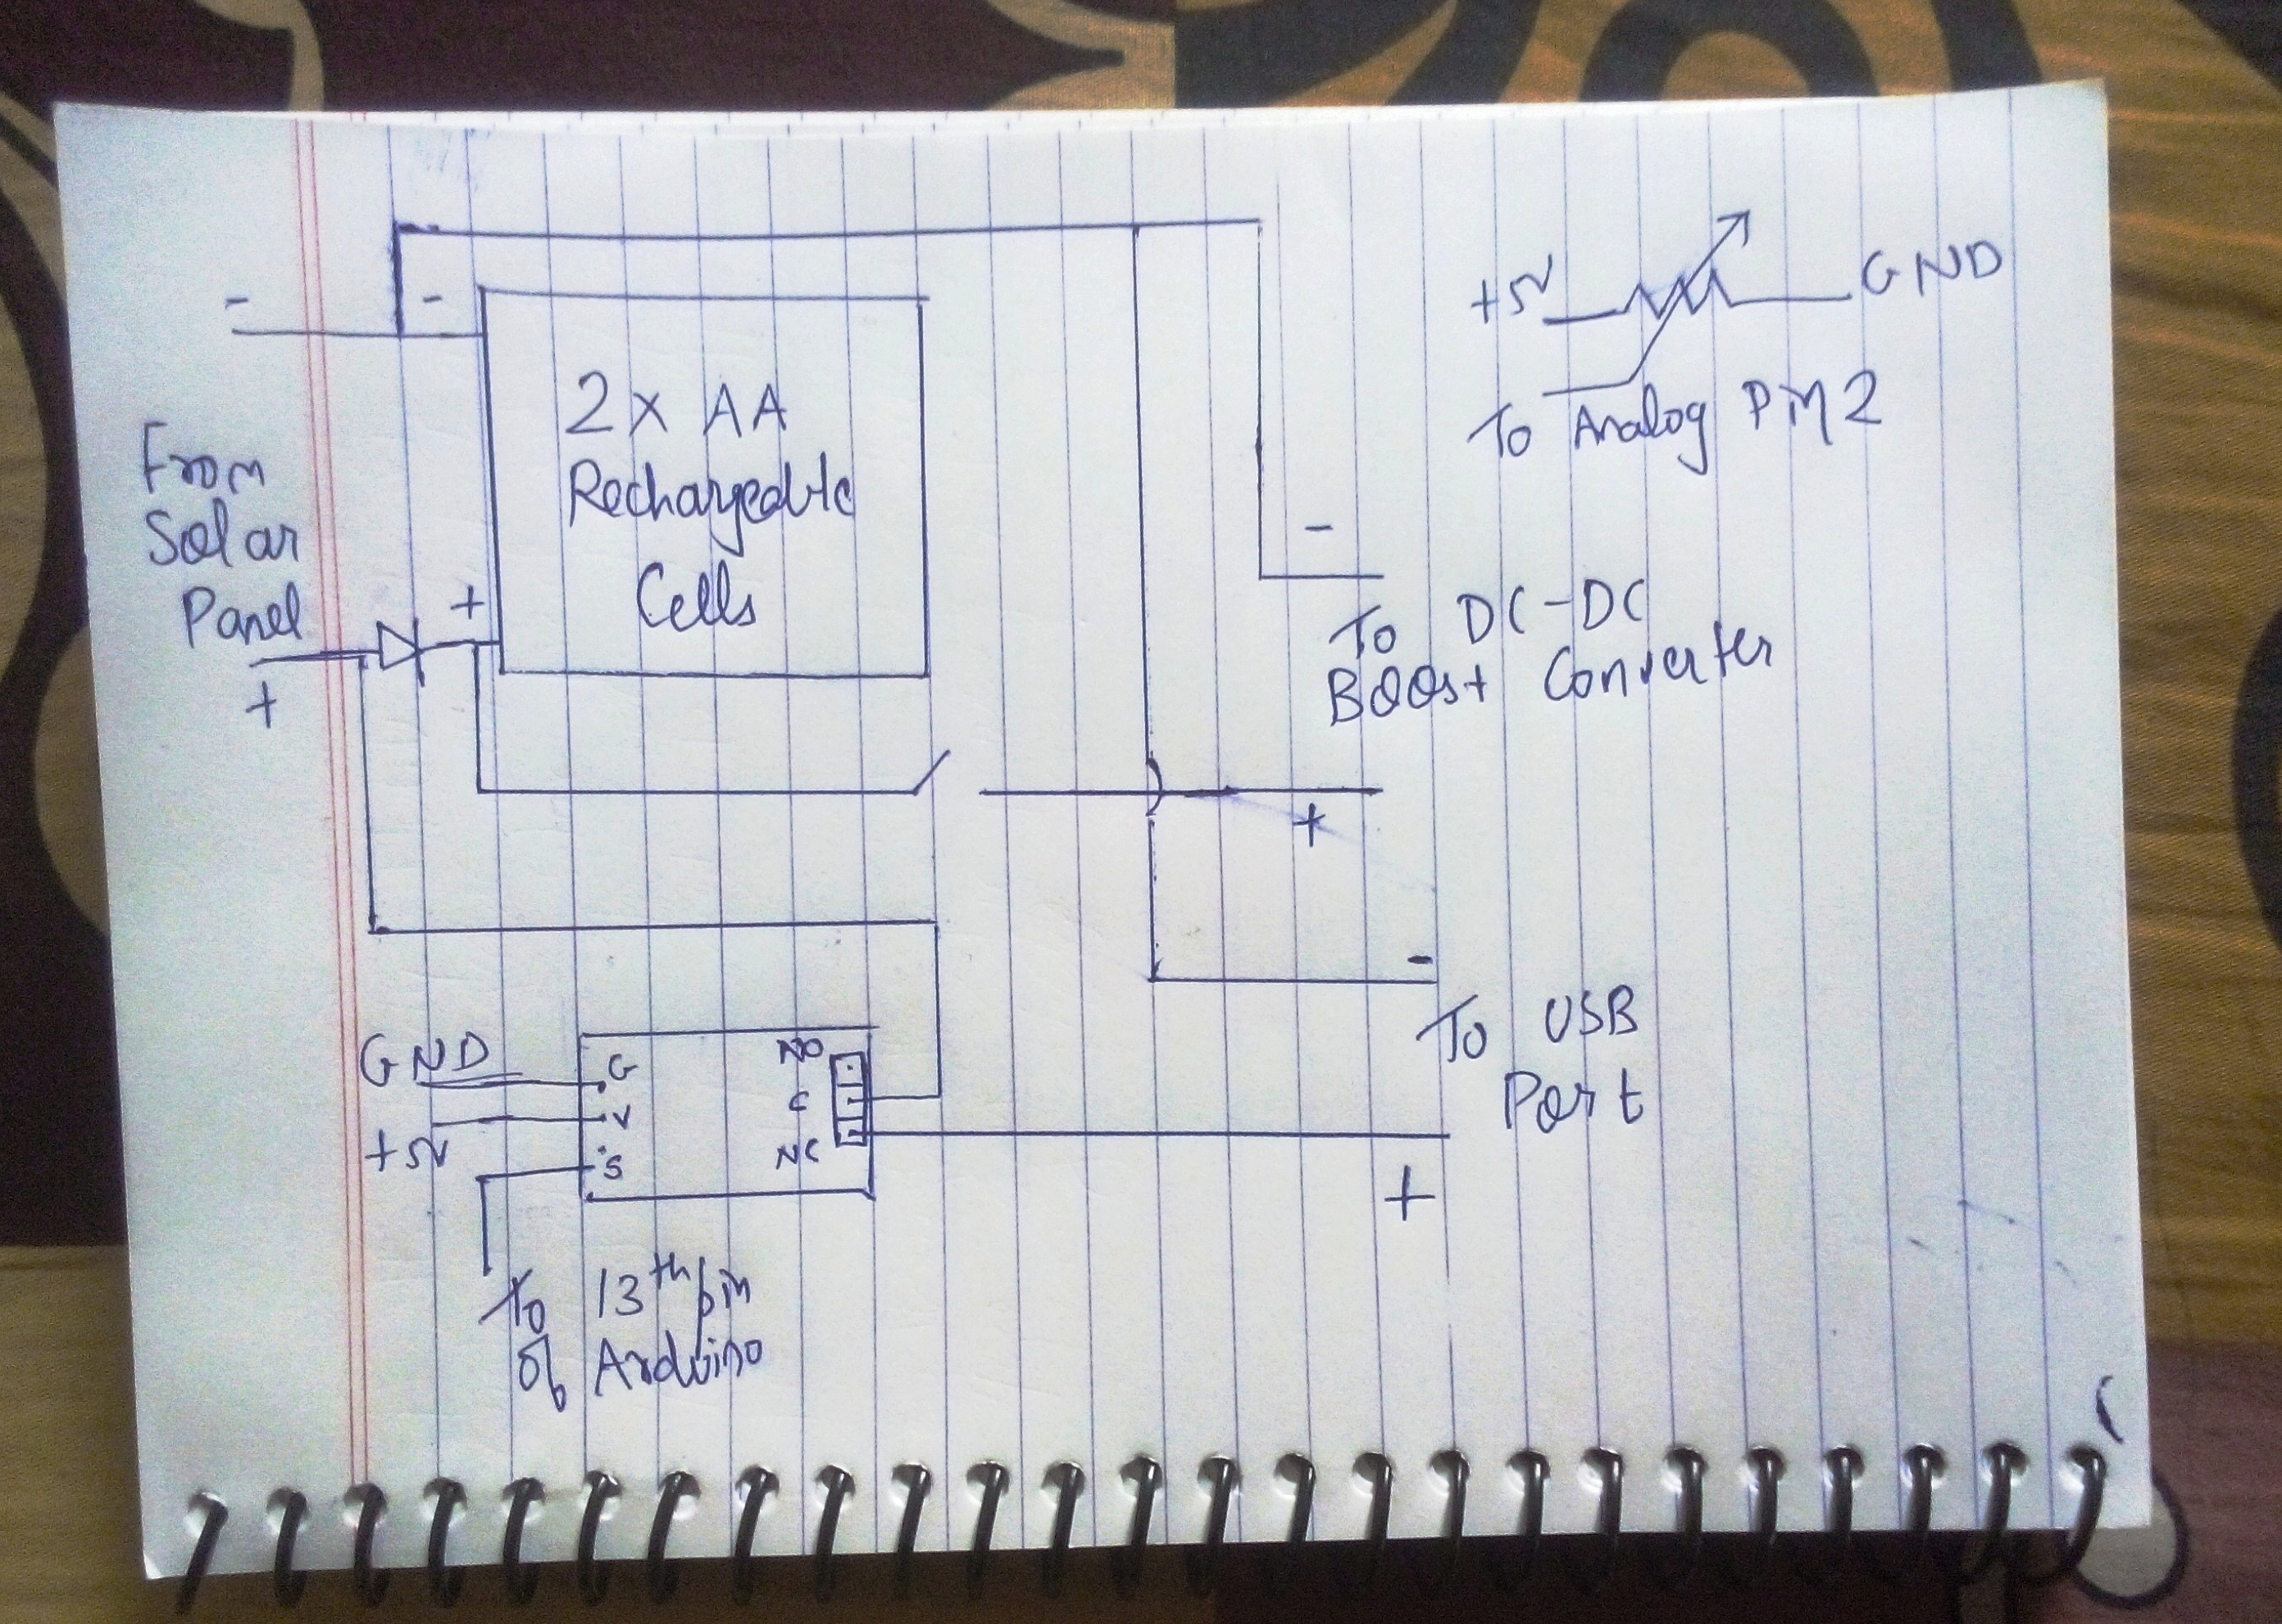 -
-
From
Solar
Panel
+
+
2 x AA
Rechargeable
Cells
+5V
GND
To Analog Pin 2
-
To DC-DC
Boost Converter
+
-
To USB
Port
+
GND
+5V
G
V
S
NO
C
NC
To 13th pin
of Arduino